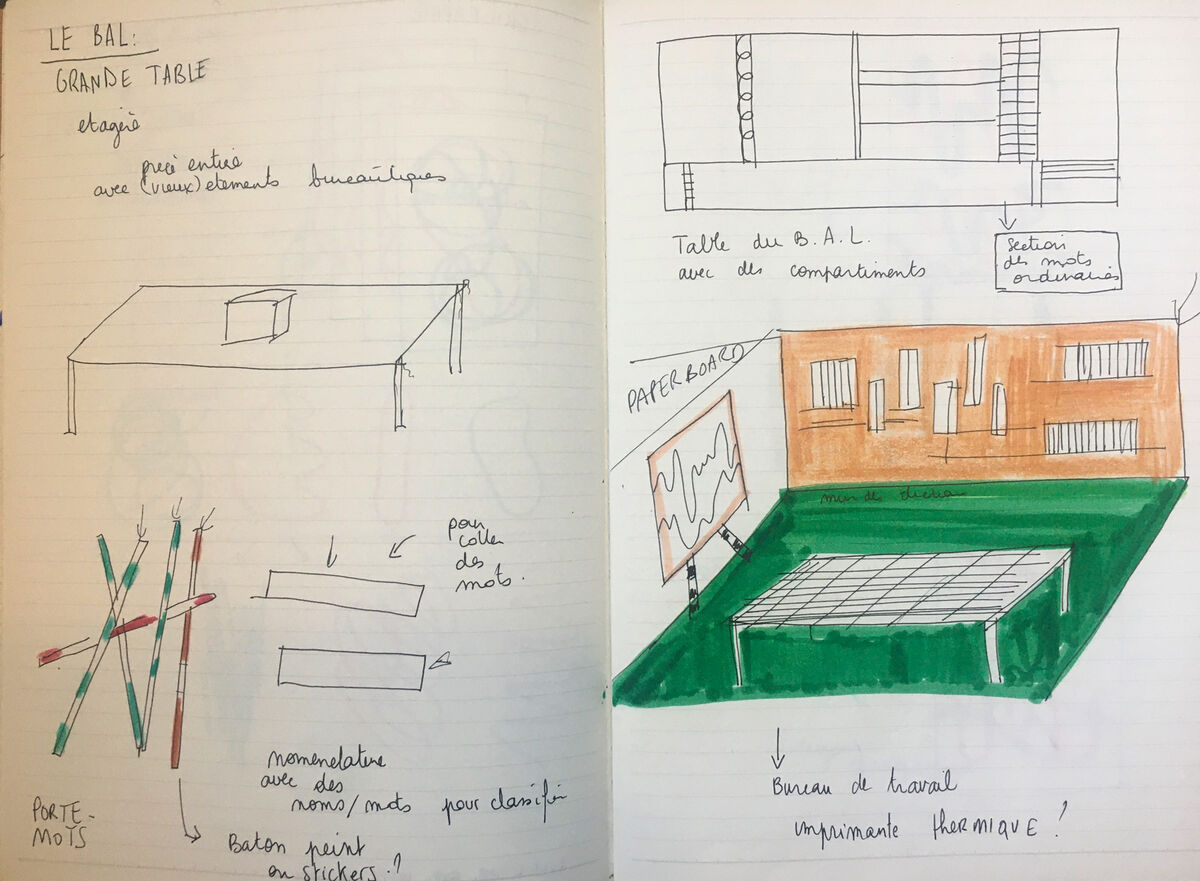 LE BAL:
GRANDE TABLE
etagère
avec (vieux) elements bureautiques
pour
coller
des
mots.
nomenclature
avec des
noms/mots pour classifier
PORTE-
MOTS
Baton peint
ou stickers ?
Table du B.A.L.
avec des compartiments
Section
des mots
ordinaires
PAPERBOARD
mur de
Bureau de travail
imprimante thermique !